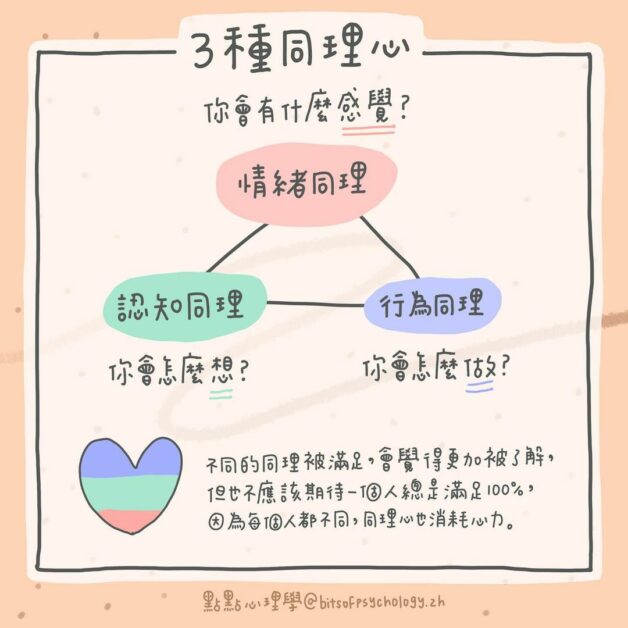 3種同理心
你會有什麼感覺?
情緒同理
認知同理
行為同理
你會怎麼想?
你會怎麼做?
不同的同理被滿足,會覺得更加被了解,
但也不應該期待一個人總是滿足100%,
因為每個人都不同,同理心也消耗心力。
點點心理學@bitsofpsychology.zh